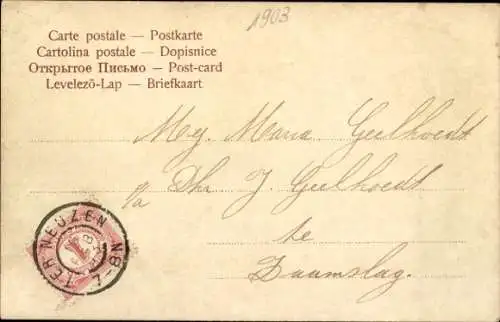 1903
Carte postale — Postkarte
Cartolina postale — Dopisnice
Открытое Письмо — Post-card
Levelező-Lap — Briefkaart
Mej. Maria Geelhoedt
p/a Dhr J. Geelhoedt
te
Zaamslag.
TER NEUZEN